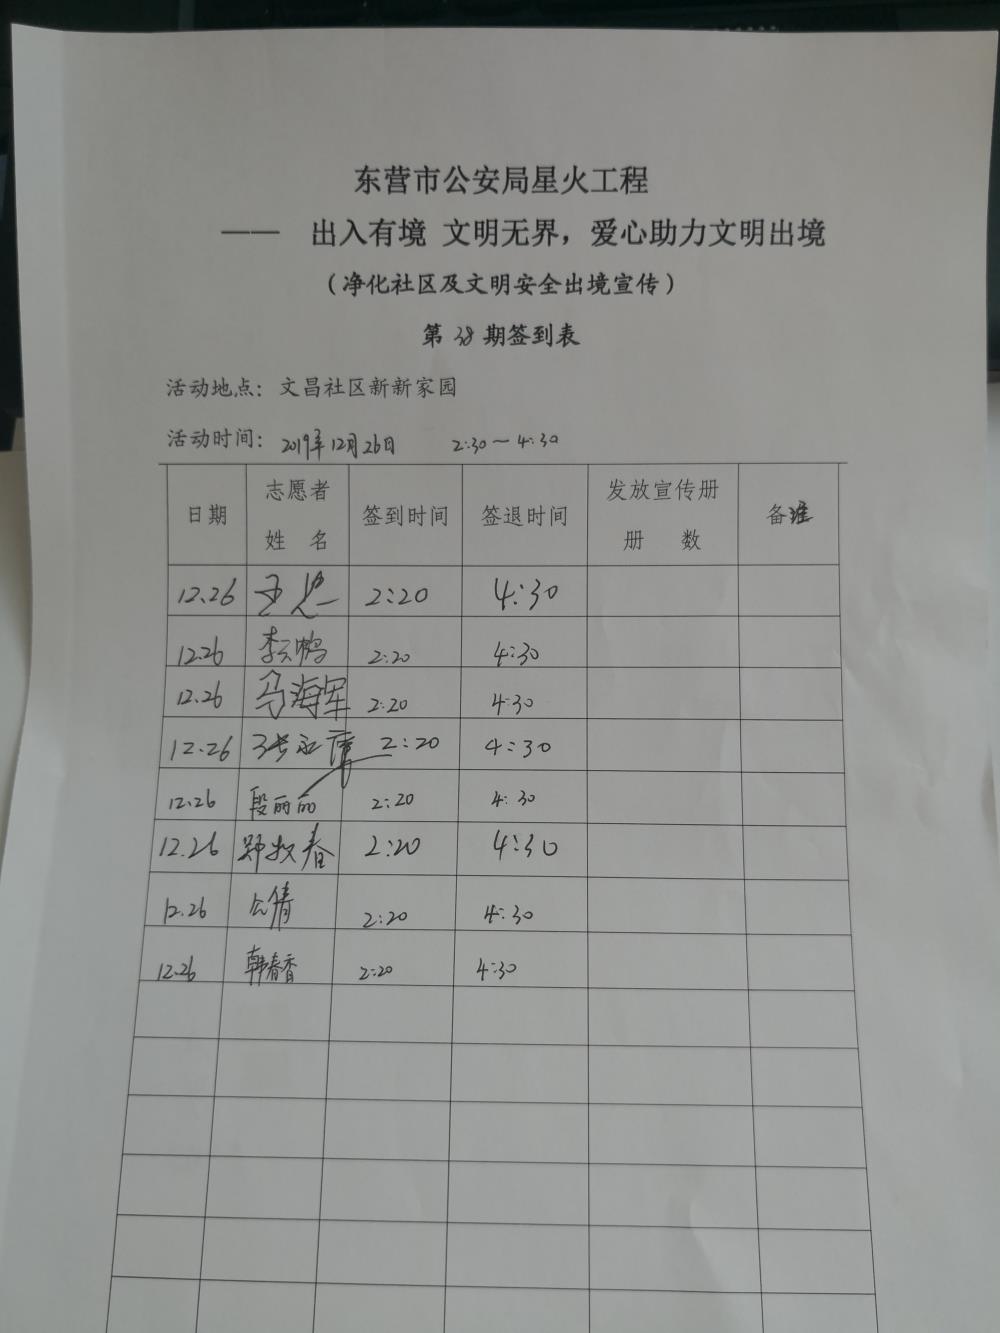 东营市公安局星火工程
—— 出入有境 文明无界，爱心助力文明出境
（净化社区及文明安全出境宣传）
第 38 期签到表
活动地点：文昌社区新新家园
活动时间：2019年12月26日 2:30～4:30
日期 志愿者姓名 签到时间 签退时间 发放宣传册册数 备注
12.26 2:20 4:30
12.26 李云鹏 2:20 4:30
12.26 马海军 2:20 4:30
12.26 2:20 4:30
12.26 段丽丽 2:20 4:30
12.26 春 2:20 4:30
12.26 公倩 2:20 4:30
12.26 韩春香 2:20 4:30